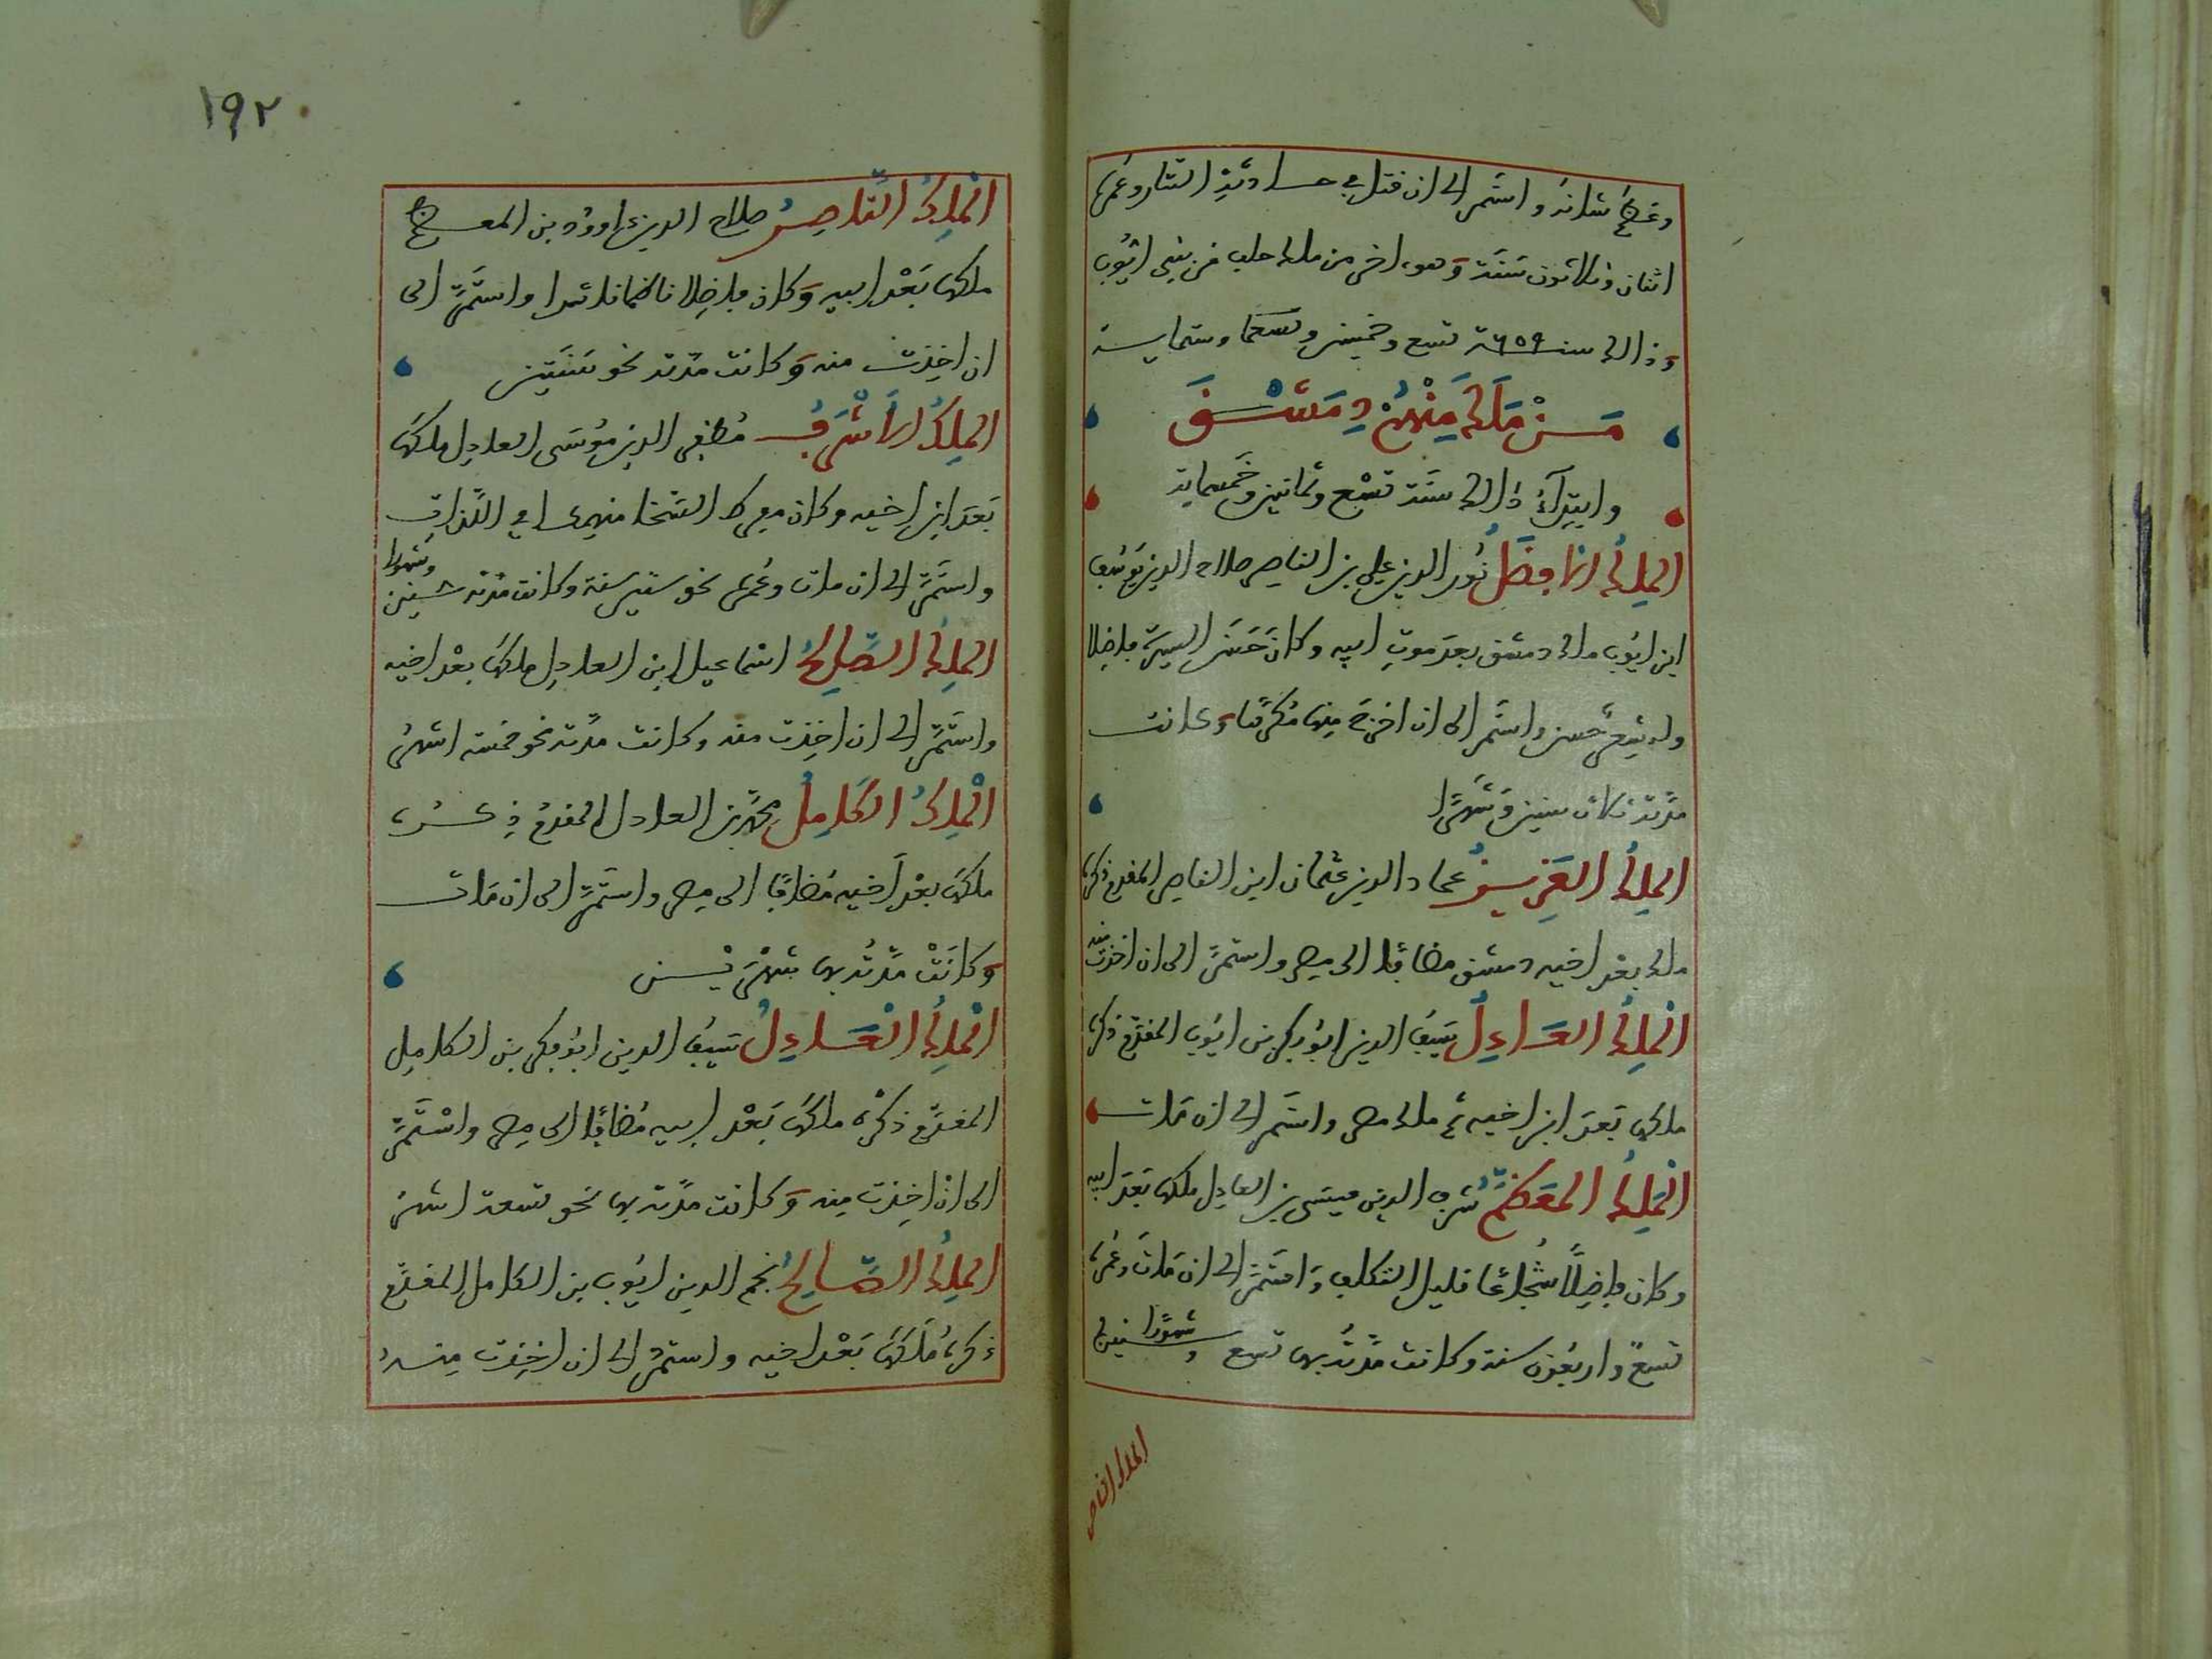 وعظم شانه واستمر الى ان قتل في حادثة التتار وعمره
اثنان وثلاثون سنة وهو اخر من ملك حلب من بني ايوب
وذالك سنة ٦٥٩ تسع وخمسين وستماية
مَنْ مَلَكَ مِنْهُمْ دِمَشْقَ
وابتدآء ذالك سنة تسع وثمانين وخمسماية
الملك الافضل نور الدين علي بن الناصر صلاح الدين يوسف
ابن ايوب ملك دمشق بعد موت ابيه وكان حسن السيرة فاضلا
وله شعر حسن واستمر الى ان اخرج منها مكرها وكانت
مدته ثلاث سنين وشهرا
الملك العزيز عماد الدين عثمان ابن الناصر المقدم ذكره
ملك بعد اخيه دمشق مضافا الى مصر واستمر الى ان اخذت منه
الملك العادل سيف الدين ابو بكر بن ايوب المقدم ذكره
ملكها بعد ابن اخيه ثم ملك مصر واستمر الى ان مات
الملك المعظم شرف الدين عيسى بن العادل ملكها بعد ابيه
وكان فاضلا شجاعا قليل التكلف واستمر الى ان مات وعمره
تسع واربعون سنة وكانت مدته بها تسع سنين وشهورا
الملك الناصر
١٩٢
الملك الناصر صلاح الدين داوود بن المعظم
ملكها بعد ابيه وكان فاضلا ناظما ناثرا واستمر الى
ان اخذت منه وكانت مدته نحو سنتين
الملك الاشرف مظفر الدين موسى العادل ملكها
بعد ابن اخيه وكان مفرط السخا منهمكا في اللذات
واستمر الى ان مات وعمره نحو ستين سنة وكانت مدته سنين وشهورا
الملك الصالح اسماعيل ابن العادل ملكها بعد اخيه
واستمر الى ان اخذت منه وكانت مدته نحو خمسة اشهر
الملك الكامل محمد بن العادل المقدم ذكره
ملكها بعد اخيه مضافا الى مصر واستمر الى ان مات
وكانت مدته بها شهرين
الملك العادل سيف الدين ابو بكر بن الكامل
المقدم ذكره ملكها بعد ابيه مضافا الى مصر واستمر
الى ان اخذت منه وكانت مدته بها نحو تسعة اشهر
الملك الصالح نجم الدين ايوب بن الكامل المقدم
ذكره ملكها بعد اخيه واستمر الى ان اخذت منه